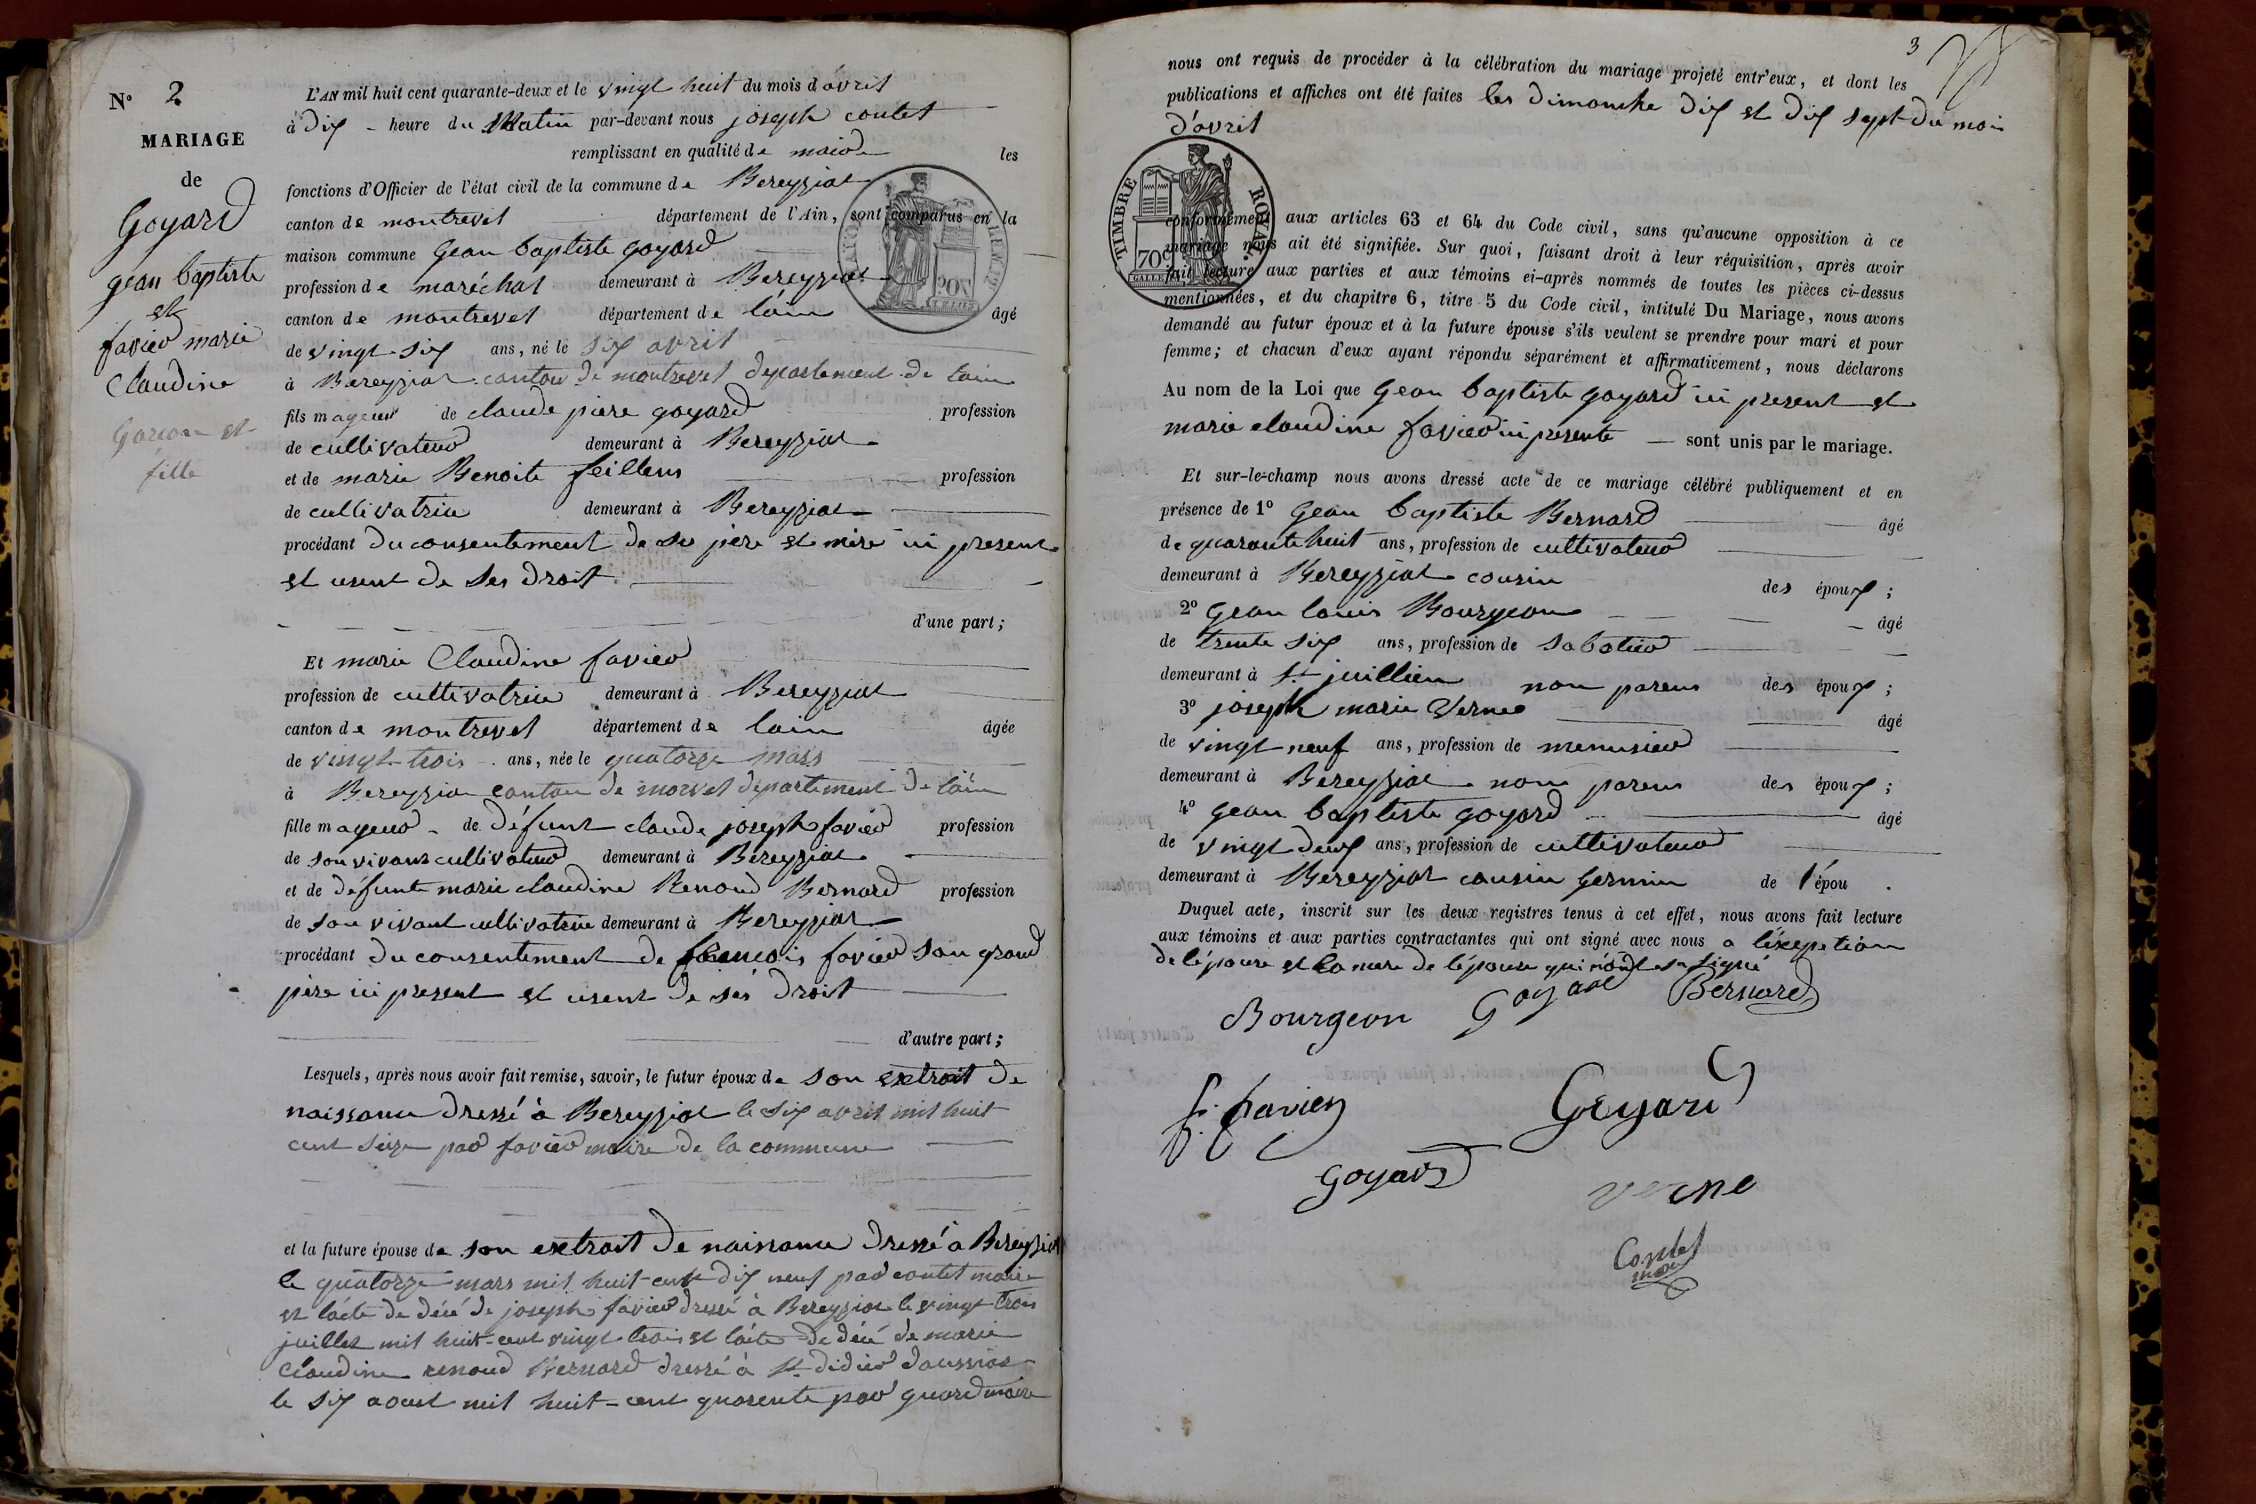 N° 2
MARIAGE
de
Goyard
gean baptiste
et
favier marie
Claudine
Garçon et
fille
L'AN mil huit cent quarante-deux et le vingt huit du mois d'avril
à dix heure du Matin par-devant nous joseph contet
remplissant en qualité de maire les
fonctions d'Officier de l'état civil de la commune de Bereyziat
canton de montrevel département de l'Ain, sont comparus en la
maison commune gean baptiste goyard
profession de maréchal demeurant à Bereyziat
canton de montrevel département de l'ain âgé
de vingt six ans, né le six avril
à Bereyziat canton de montrevel departement de lain
fils mageur de claude piere goyard profession
de cultivateur demeurant à Bereyziat
et de marie Benoite feillens profession
de cultivatrice demeurant à Bereyziat
procédant du consentement de se père et mère ici present
et usent de ses droit
d'une part;
Et marie Claudine favier
profession de cultivatrice demeurant à Bereyziat
canton de montrevel département de lain âgée
de vingt-trois ans, née le quatorze mars
à Bereyzia canton de morvel departement de lain
fille mageur de défunt claude joseph favier profession
de son vivant cultivateur demeurant à Bereyziat
et de défunte marie claudine Renoud Bernard profession
de son vivant cultivatrice demeurant à Bereyziat
procédant du consentement de francois favier son grand
père ici present et usent de ses droit
d'autre part;
Lesquels, après nous avoir fait remise, savoir, le futur époux de son extrait de
naissance dressé à Bereyziat le six avril mil huit
cent seize par favier maire de la commune
et la future épouse de son extrait de naissance dressé à Bereyziat
le quatorze mars mil huit-cent dix neuf par contet maire
et lacte de décé de joseph favier dressé à Bereyziat le vingt trois
juillet mil huit-cent vingt trois et lacte de décé de marie
claudine renoud Bernard dressé à St didier daussiat
le six aoust mil huit-cent quarente par guard maire
3
nous ont requis de procéder à la célébration du mariage projeté entr'eux, et dont les
publications et affiches ont été faites les dimanche dix et dix sept du mois
d'avril
TIMBRE ROYAL.
70c
conformément aux articles 63 et 64 du Code civil, sans qu'aucune opposition à ce
mariage nous ait été signifiée. Sur quoi, faisant droit à leur réquisition, après avoir
fait lecture aux parties et aux témoins ci-après nommés de toutes les pièces ci-dessus
mentionnées, et du chapitre 6, titre 5 du Code civil, intitulé Du Mariage, nous avons
demandé au futur époux et à la future épouse s'ils veulent se prendre pour mari et pour
femme; et chacun d'eux ayant répondu séparément et affirmativement, nous déclarons
Au nom de la Loi que gean baptiste goyard ici present et
marie claudine favier ici presente sont unis par le mariage.
Et sur-le-champ nous avons dressé acte de ce mariage célébré publiquement et en
présence de 1° gean baptiste Bernard âgé
de quarante huit ans, profession de cultivateur
demeurant à Bereyziat cousin des époux;
2° gean louis Bourgeon âgé
de trente six ans, profession de sabotier
demeurant à St juillien non parens des époux;
3° joseph marie Verne âgé
de vingt neuf ans, profession de menusier
demeurant à Bereyziat non parens des époux;
4° gean baptiste goyard âgé
de vingt deux ans, profession de cultivateur
demeurant à Bereyziat cousin germin de l'épou.
Duquel acte, inscrit sur les deux registres tenus à cet effet, nous avons fait lecture
aux témoins et aux parties contractantes qui ont signé avec nous a léxeption
de l'épouse et la mere de lépouse qui n'ont signé
Goyard Bernard
Bourgeon
f. favier Goyard
Goyard verne
Contet
maire